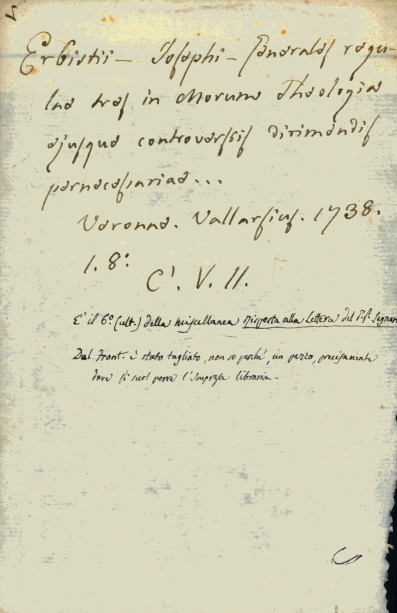 Erbistii - Josephi - Generales regu-
lae tres in Morum Theologia
ejusque controversis dirimendis
pernecessariae...
Veronae. Vallarsius. 1738.
1. 8:
C'. V. 11.
E' il 6º (ult.) della miscellanea Risposta alla Lettera del
Dal Front. è stato tagliato, non so perchè, un pezzo, precisamente
dove si suol porre l'impresa libraria.